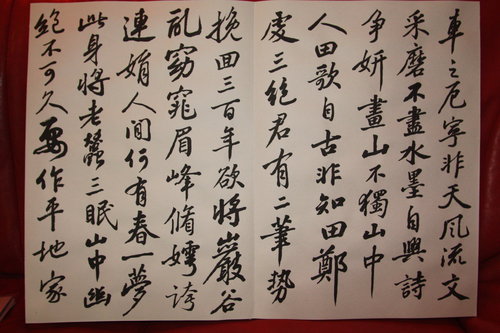 車之厄寧非天風流文
采磨不盡水墨自與詩
争妍畫山不獨山中
人田歌自古非知田鄭
虔三絕君有二筆勢
挽回三百年欲將巖谷
亂窈窕眉峰脩嫮誇
連娟人間何有春一夢
此身將老蠶三眠山中幽
絕不可久要作平地家